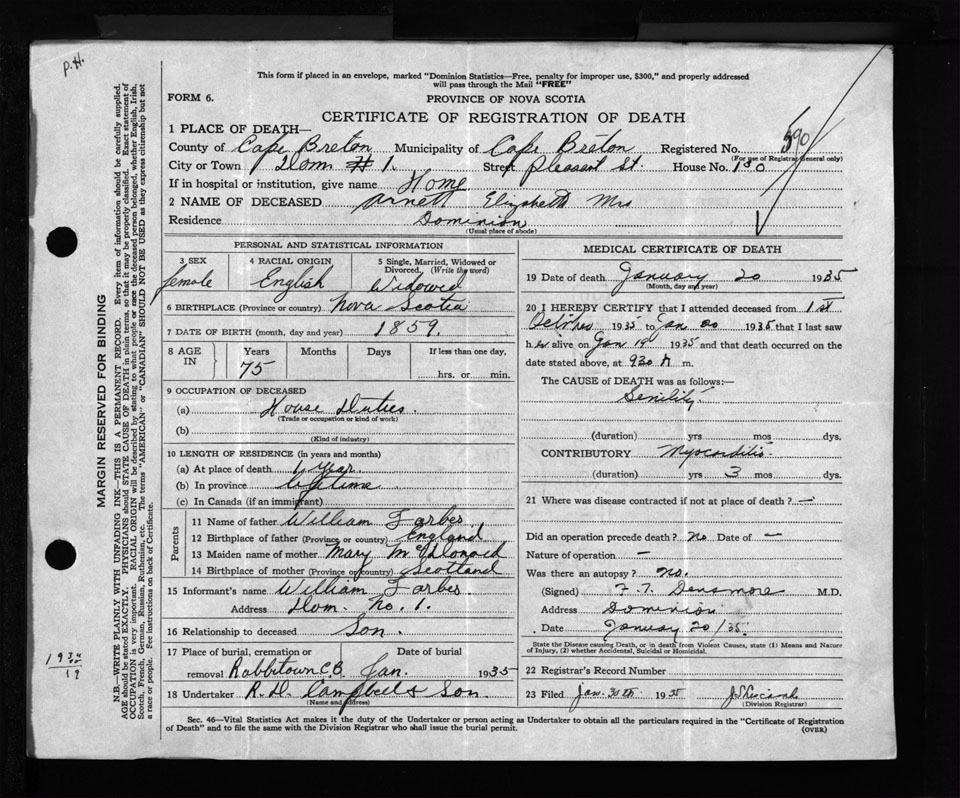 P.H.
This form if placed in an envelope, marked "Dominion Statistics—Free, penalty for improper use, $300," and properly addressed
will pass through the Mail "FREE"
FORM 6.
PROVINCE OF NOVA SCOTIA
CERTIFICATE OF REGISTRATION OF DEATH
1 PLACE OF DEATH—
County of Cape Breton Municipality of Cape Breton Registered No. 590
(For use of Registrar General only)
City or Town Dom # 1. Street Pleasant St. House No. 130
If in hospital or institution, give name Home
2 NAME OF DECEASED Arnett Elizabeth Mrs
Residence Dominion
(Usual place of abode)
PERSONAL AND STATISTICAL INFORMATION
3 SEX female
4 RACIAL ORIGIN English
5 Single, Married, Widowed or Divorced. (Write the word) Widowed
6 BIRTHPLACE (Province or country) Nova Scotia
7 DATE OF BIRTH (month, day and year) 1859.
8 AGE IN Years Months Days If less than one day,
75 hrs. or min.
9 OCCUPATION OF DECEASED
(a) House Duties.
(Trade or occupation or kind of work)
(b)
(Kind of industry)
10 LENGTH OF RESIDENCE (in years and months)
(a) At place of death 1 year.
(b) In province lifetime
(c) In Canada (if an immigrant)
Parents
11 Name of father William Farbes
12 Birthplace of father (Province or country) England
13 Maiden name of mother Mary McDonald
14 Birthplace of mother (Province or country) Scotland
15 Informant's name William Farbes
Address Dom. No. 1.
16 Relationship to deceased Son.
17 Place of burial, cremation or removal Date of burial
Rabbittown C.B. Jan. 1935
18 Undertaker R. D. Campbell & Son.
(Name and address)
MEDICAL CERTIFICATE OF DEATH
19 Date of death January 20 1935
(Month, day and year)
20 I HEREBY CERTIFY that I attended deceased from 1st
1935 to Jan 20 1935 that I last saw
her alive on Jan 19 1935 and that death occurred on the
date stated above, at 930 A m.
The CAUSE of DEATH was as follows:—
Senility
(duration) yrs mos dys.
CONTRIBUTORY Myocarditis
(duration) yrs 3 mos dys.
21 Where was disease contracted if not at place of death? —
Did an operation precede death? no Date of —
Nature of operation —
Was there an autopsy? no.
(Signed) F. T. Densmore M.D.
Address Dominion
Date January 20/35.
State the Disease causing Death, or in death from Violent Causes, state (1) Means and Nature
of Injury, (2) whether Accidental, Suicidal or Homicidal.
22 Registrar's Record Number
23 Filed Jan. 30th 1935
(Division Registrar)
Sec. 46—Vital Statistics Act makes it the duty of the Undertaker or person acting as Undertaker to obtain all the particulars required in the "Certificate of Registration
of Death" and to file the same with the Division Registrar who shall issue the burial permit.
(OVER)
MARGIN RESERVED FOR BINDING
N.B.—WRITE PLAINLY WITH UNFADING INK—THIS IS A PERMANENT RECORD. Every item of information should be carefully supplied.
AGE should be stated EXACTLY. PHYSICIANS should STATE CAUSE OF DEATH in plain terms, so that it may be properly classified. Exact statement of
OCCUPATION is very important. RACIAL ORIGIN will be described by stating to what people or race the deceased person belonged, whether English, Irish,
Scotch, French, German, Russian, Ruthenian, etc. The terms "AMERICAN" or "CANADIAN" SHOULD NOT BE USED as they express citizenship but not
a race or people. See instructions on back of Certificate.